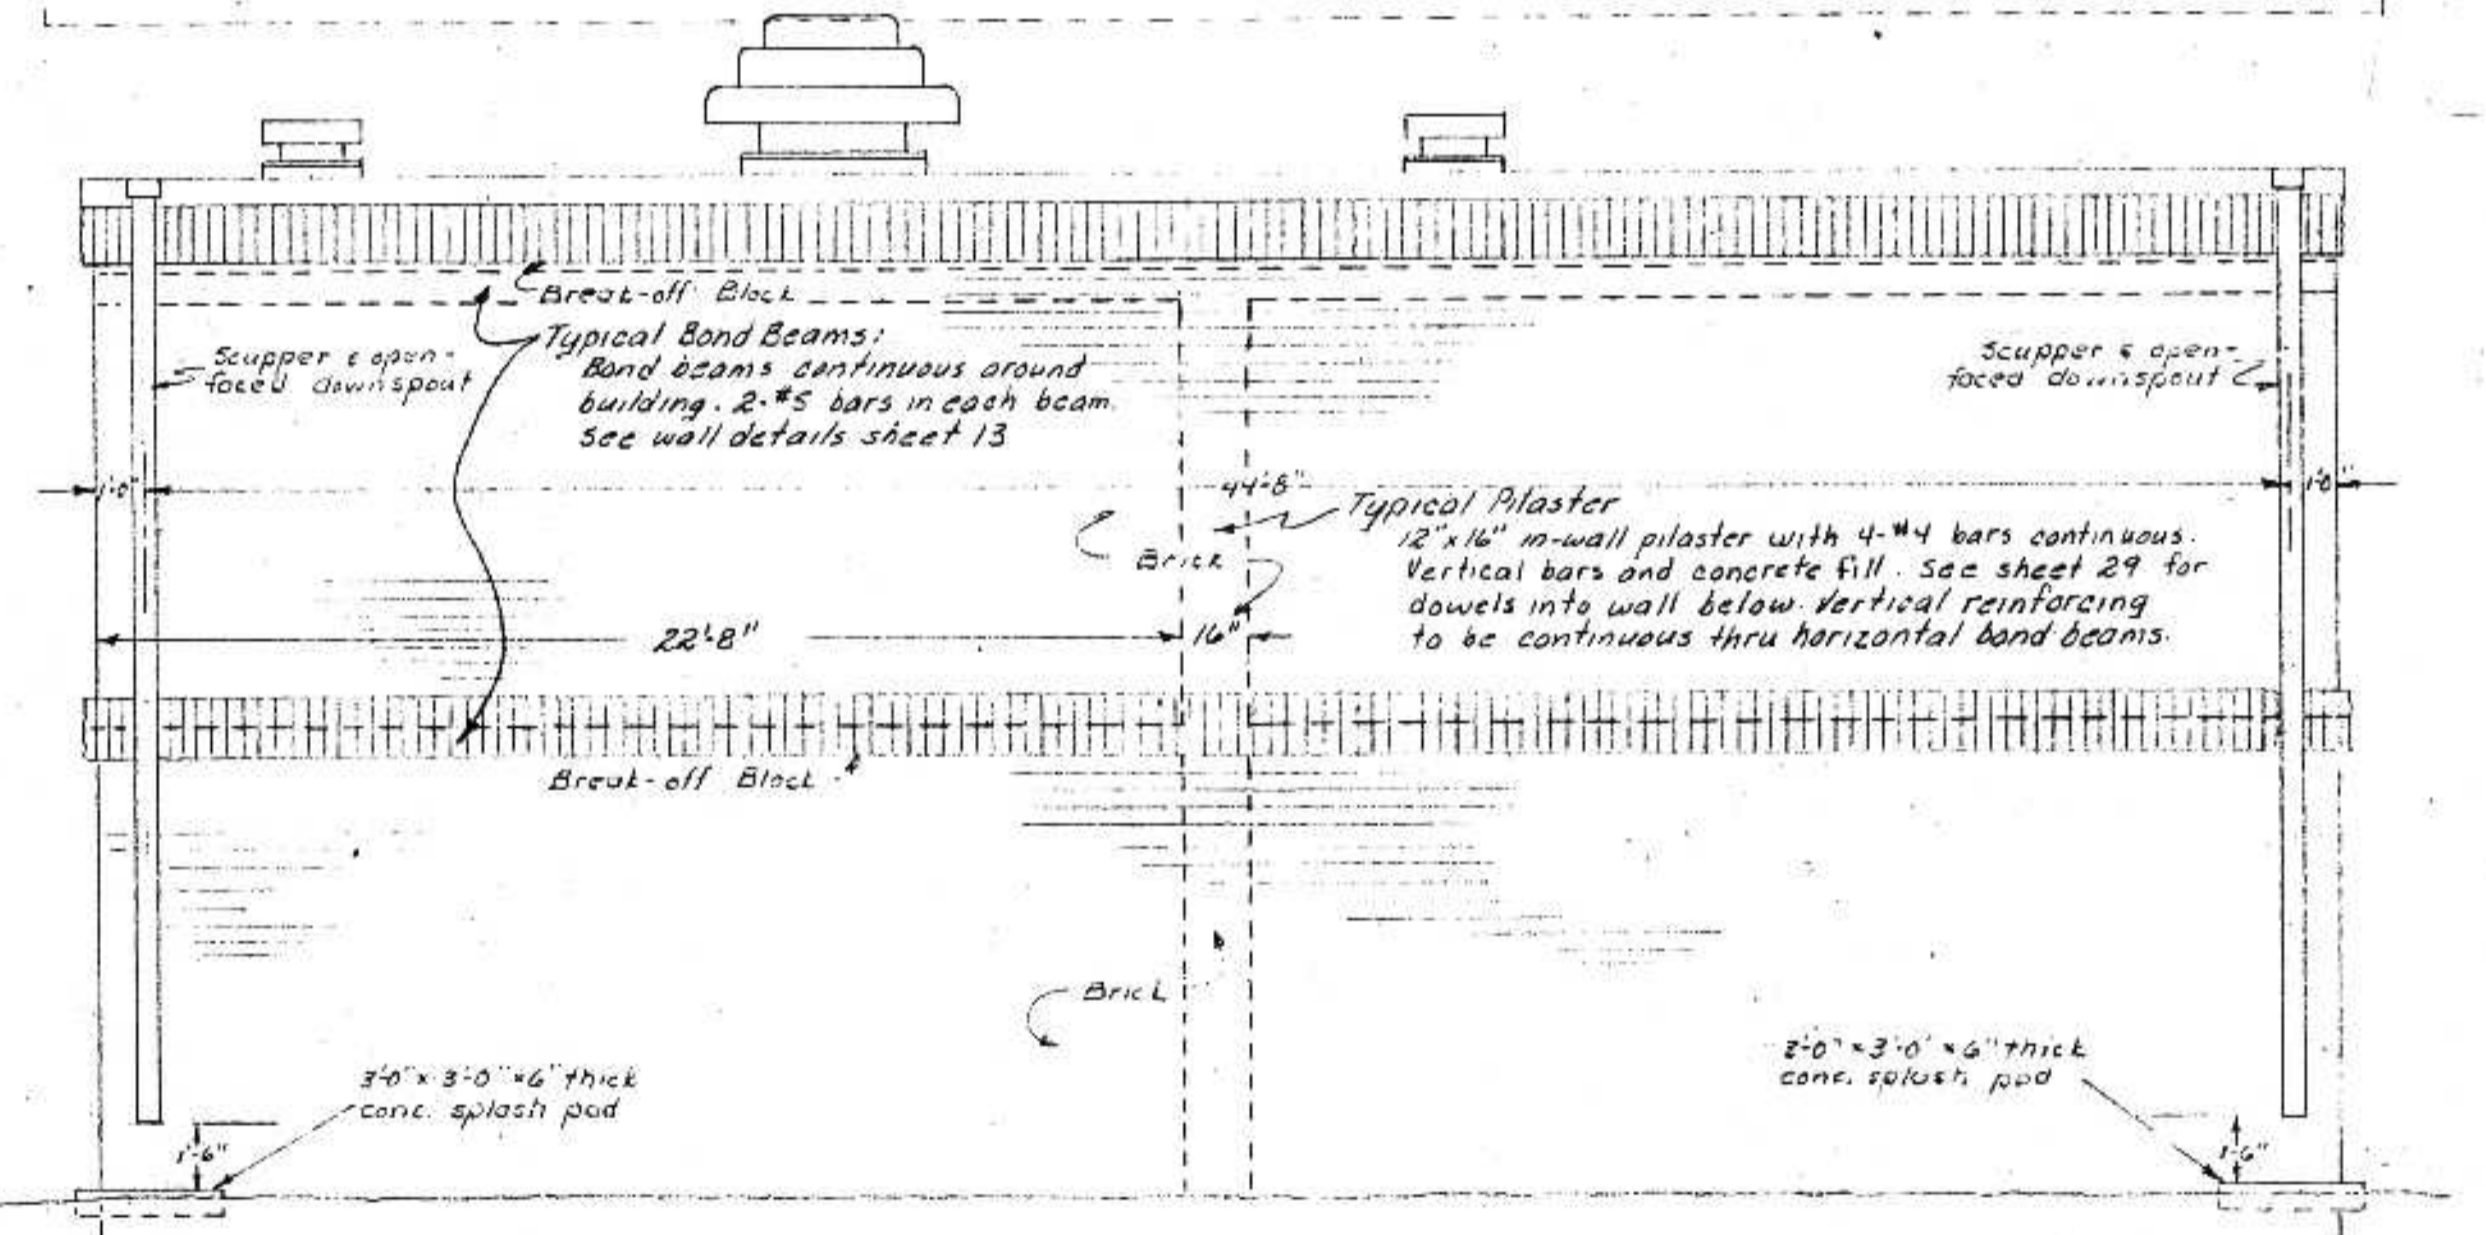 Break-off Block
Typical Bond Beams:
Bond beams continuous around
building. 2-#5 bars in each beam.
See wall details sheet 13
Scupper & open-
faced downspout
Scupper & open-
faced downspout
1'-0"
44'-8"
1'-0"
Typical Pilaster
12"x16" in-wall pilaster with 4-#4 bars continuous.
Vertical bars and concrete fill. See sheet 29 for
dowels into wall below. Vertical reinforcing
to be continuous thru horizontal bond beams.
Brick
22'-8"
16"
Break-off Block
Brick
3'-0" x 3'-0" x 6" thick
conc. splash pad
1'-6"
x 3'-0" x 6" thick
conc. splash pad
1'-6"